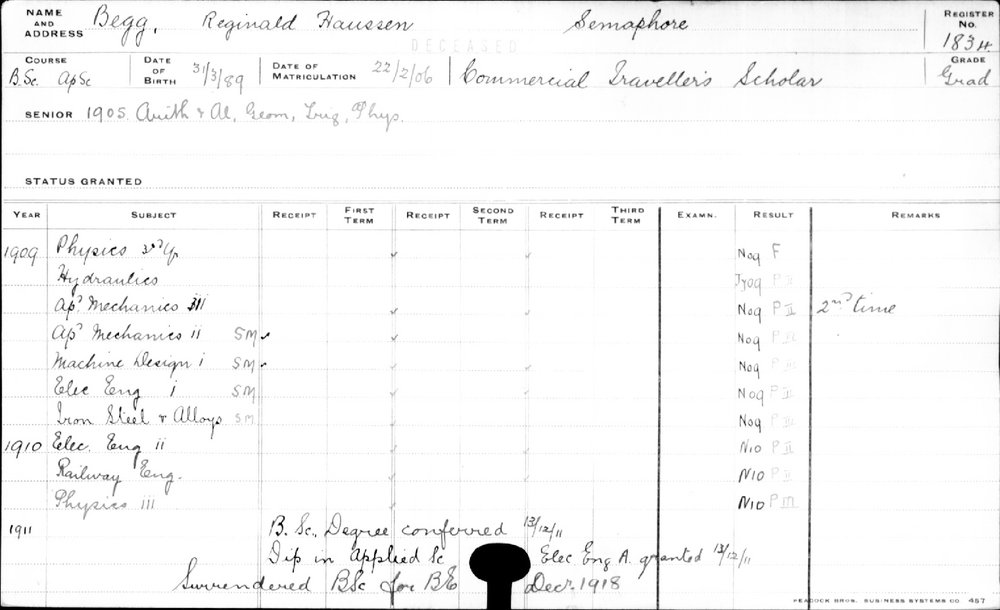 NAME AND ADDRESS Begg, Reginald Haussen Semaphore REGISTER No. 1834
DECEASED
COURSE B.Sc. ApSc DATE OF BIRTH 31/3/89 DATE OF MATRICULATION 22/2/06 Commercial Travellers Scholar GRADE Grad
SENIOR 1905 Arith & Al, Geom, Trig, Phys.
STATUS GRANTED
YEAR SUBJECT RECEIPT FIRST TERM RECEIPT SECOND TERM RECEIPT THIRD TERM EXAMN. RESULT REMARKS
1909 Physics 3rd yr N09 F
Hydraulics P II
Apd Mechanics iii N09 P II 2nd time
Apd Mechanics ii SM N09 P II
Machine Design i SM N09 P II
Elec Eng i SM N09 P II
Iron Steel & Alloys SM N09 P II
1910 Elec. Eng ii N10 P II
Railway Eng. N10 P II
Physics iii N10 P III
1911 B. Sc. Degree conferred 13/12/11
Dip in Applied Sc Elec Eng A. granted 13/12/11
Surrendered BSc for BE Decr 1918
PEACOCK BROS. BUSINESS SYSTEMS CO 457